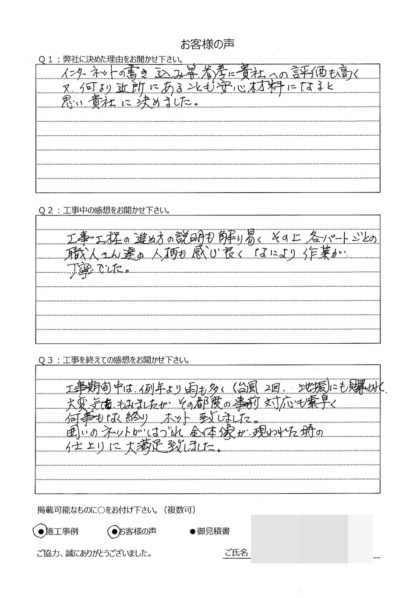 お客様の声
Q1：弊社に決めた理由をお聞かせ下さい。
インターネットの書き込み等参考に貴社への評価も高く
又、何より近所にあることも安心材料になると
思い貴社に決めました。
Q2：工事中の感想をお聞かせ下さい。
工事工程の進め方の説明も解り易く その上 各パートごとの
職人さん達の人柄も感じ良く なにより 作業が
丁寧でした。
Q3：工事を終えての感想をお聞かせ下さい。
工事期間中は、例年より雨も多く（台風2回、地震にも見舞われ
大変 もみましたが その都度の事前対応も素早く
何事もなく終り ホット致しました。
囲いのネットがはづれ 全体像が 現われた時の
仕上りに大満足致しました。
掲載可能なものに○をお付け下さい。（複数可）
●施工事例 ●お客様の声 ●御見積書
ご協力、誠にありがとうございました。 ご氏名